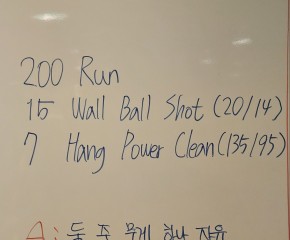 200 Run
15 Wall Ball Shot (20/14)
7 Hang Power Clean (135/95)
A: 둘 중 무게 하나 자유